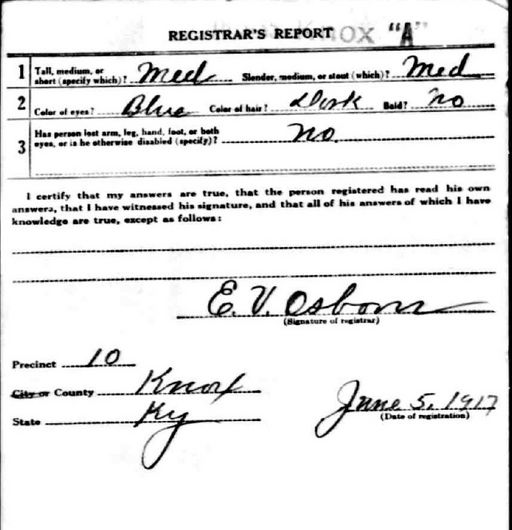 REGISTRAR'S REPORT OX "A"
1 Tall, medium, or short (specify which)? Med Slender, medium, or stout (which)? Med
2 Color of eyes? Blue Color of hair? Dark Bald? no
3 Has person lost arm, leg, hand, foot, or both eyes, or is he otherwise disabled (specify)? no
I certify that my answers are true, that the person registered has read his own
answers, that I have witnessed his signature, and that all of his answers of which I have
knowledge are true, except as follows:
E. V. Osborn
(Signature of registrar)
Precinct 10
City or County Knox
State Ky
June 5, 1917
(Date of registration)